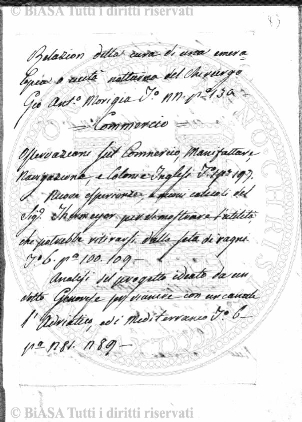 © BiASA Tutti i diritti riservati
Relazion della cura di una emera
lopia o cecità notturna del Chirurgo
Gio Ant.º Moriggia Tº nn. pª 130
Commercio
Osservazioni sul Commercio, Manifatture
Navigazione e Colonie Inglesi Tº pª 197.
Nuove esperienze, e nuovi calcoli del
Sigr per dimostrare l'utilità
che potrebbe ritirarsi dalla seta di ragni
Tº 6. pª 100. 109 —
Analisi del progetto ideato da un
dotto Genovese per unire con un canale
l'Adriatico, ed i Mediterraneo Tº 6 —
pª 1781. 1789 —
© BiASA Tutti i diritti riservati